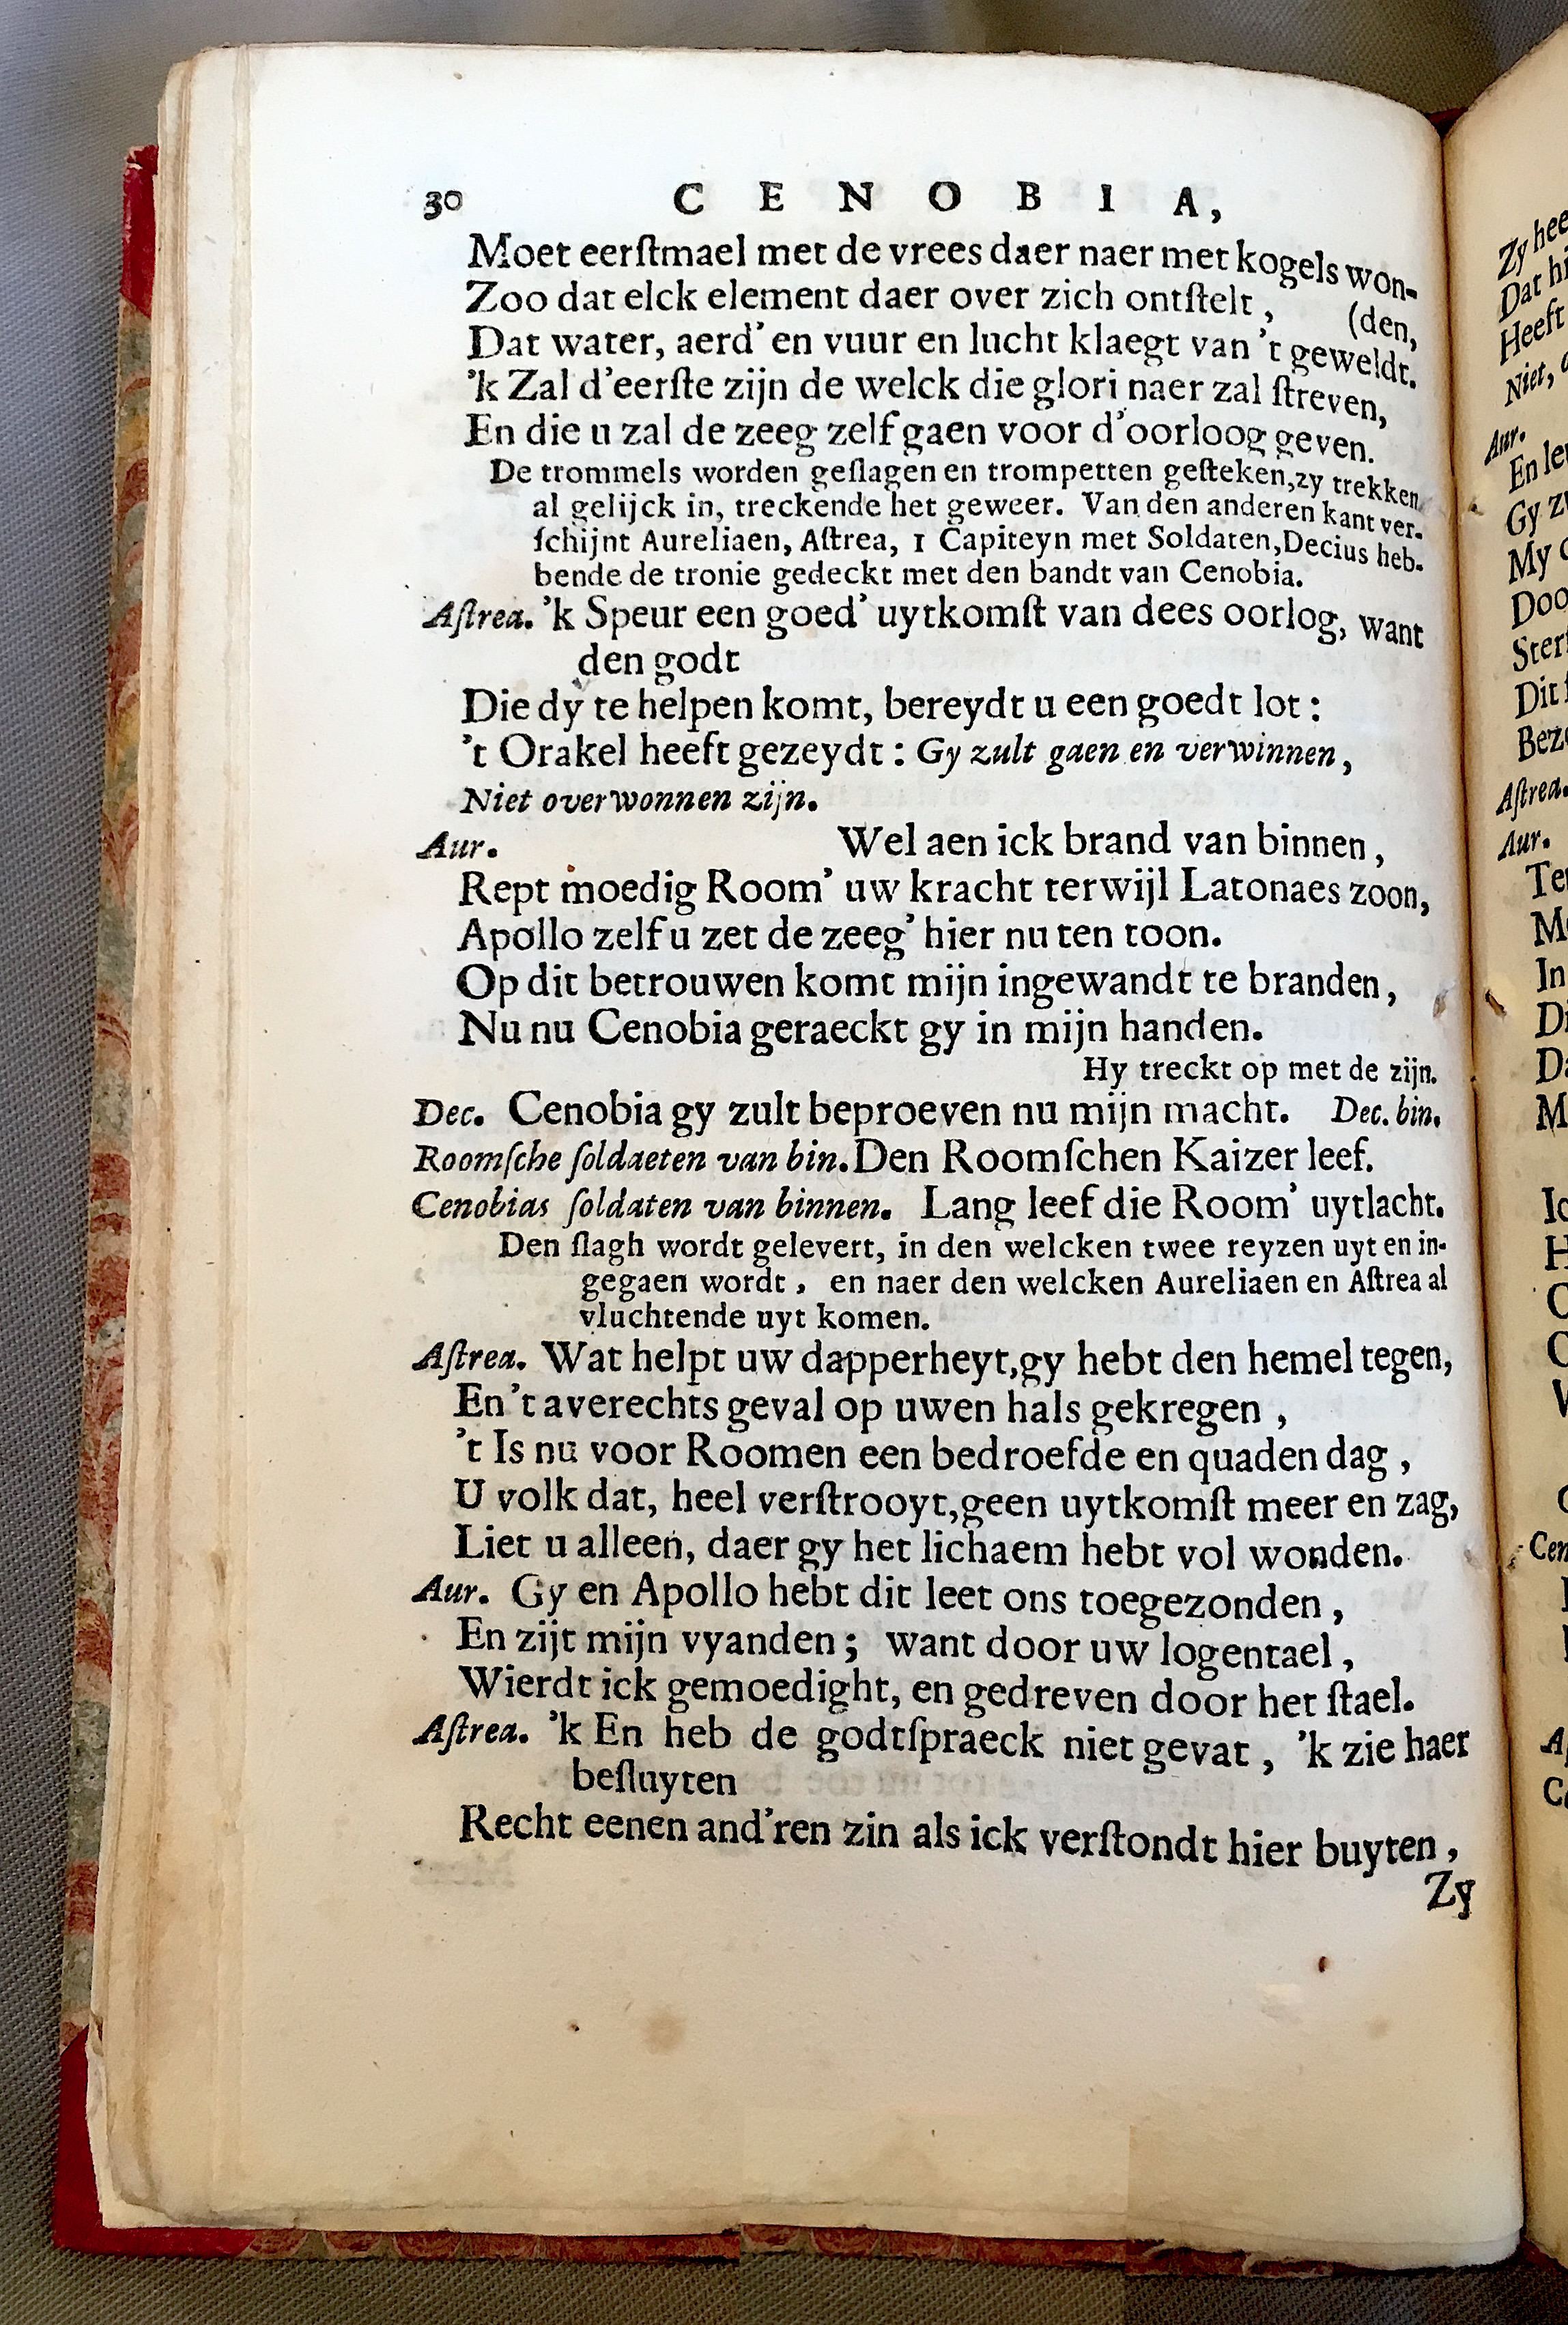 30 CENOBIA,
Moet eerſtmael met de vrees daer naer met kogels won-
Zoo dat elck element daer over zich ontſtelt, (den,
Dat water, aerd' en vuur en lucht klaegt van 't geweldt.
'k Zal d'eerſte zijn de welck die glori naer zal ſtreven,
En die u zal de zeeg zelf gaen voor d'oorloog geven.
De trommels worden geſlagen en trompetten geſteken, zy trekken
al gelijck in, treckende het geweer. Van den anderen kant ver-
ſchijnt Aureliaen, Aſtrea, 1 Capiteyn met Soldaten, Decius heb-
bende de tronie gedeckt met den bandt van Cenobia.
Aſtrea. 'k Speur een goed' uytkomſt van dees oorlog, want
den godt
Die dy te helpen komt, bereydt u een goedt lot:
't Orakel heeft gezeydt: Gy zult gaen en verwinnen,
Niet overwonnen zijn.
Aur. Wel aen ick brand van binnen,
Rept moedig Room' uw kracht terwijl Latonaes zoon,
Apollo zelf u zet de zeeg' hier nu ten toon.
Op dit betrouwen komt mijn ingewandt te branden,
Nu nu Cenobia geraeckt gy in mijn handen.
Hy treckt op met de zijn.
Dec. Cenobia gy zult beproeven nu mijn macht. Dec. bin.
Roomſche ſoldaeten van bin. Den Roomſchen Kaizer leef.
Cenobias ſoldaten van binnen. Lang leef die Room' uytlacht.
Den ſlagh wordt gelevert, in den welcken twee reyzen uyt en in-
gegaen wordt, en naer den welcken Aureliaen en Aſtrea al
vluchtende uyt komen.
Aſtrea. Wat helpt uw dapperheyt, gy hebt den hemel tegen,
En 't averechts geval op uwen hals gekregen,
't Is nu voor Roomen een bedroefde en quaden dag,
U volk dat, heel verſtrooyt, geen uytkomſt meer en zag,
Liet u alleen, daer gy het lichaem hebt vol wonden.
Aur. Gy en Apollo hebt dit leet ons toegezonden,
En zijt mijn vyanden; want door uw logentael,
Wierdt ick gemoedight, en gedreven door het ſtael.
Aſtrea. 'k En heb de godtſpraeck niet gevat, 'k zie haer
beſluyten
Recht eenen and'ren zin als ick verſtondt hier buyten,
Zy
Zy hee
Dat hi
Heeft
Niet,
Aur.
En le
Gy z
My
Doo
Ster
Dit
Bez
Aſtrea.
Aur.
Te
M
In
D
Da
M
Cen